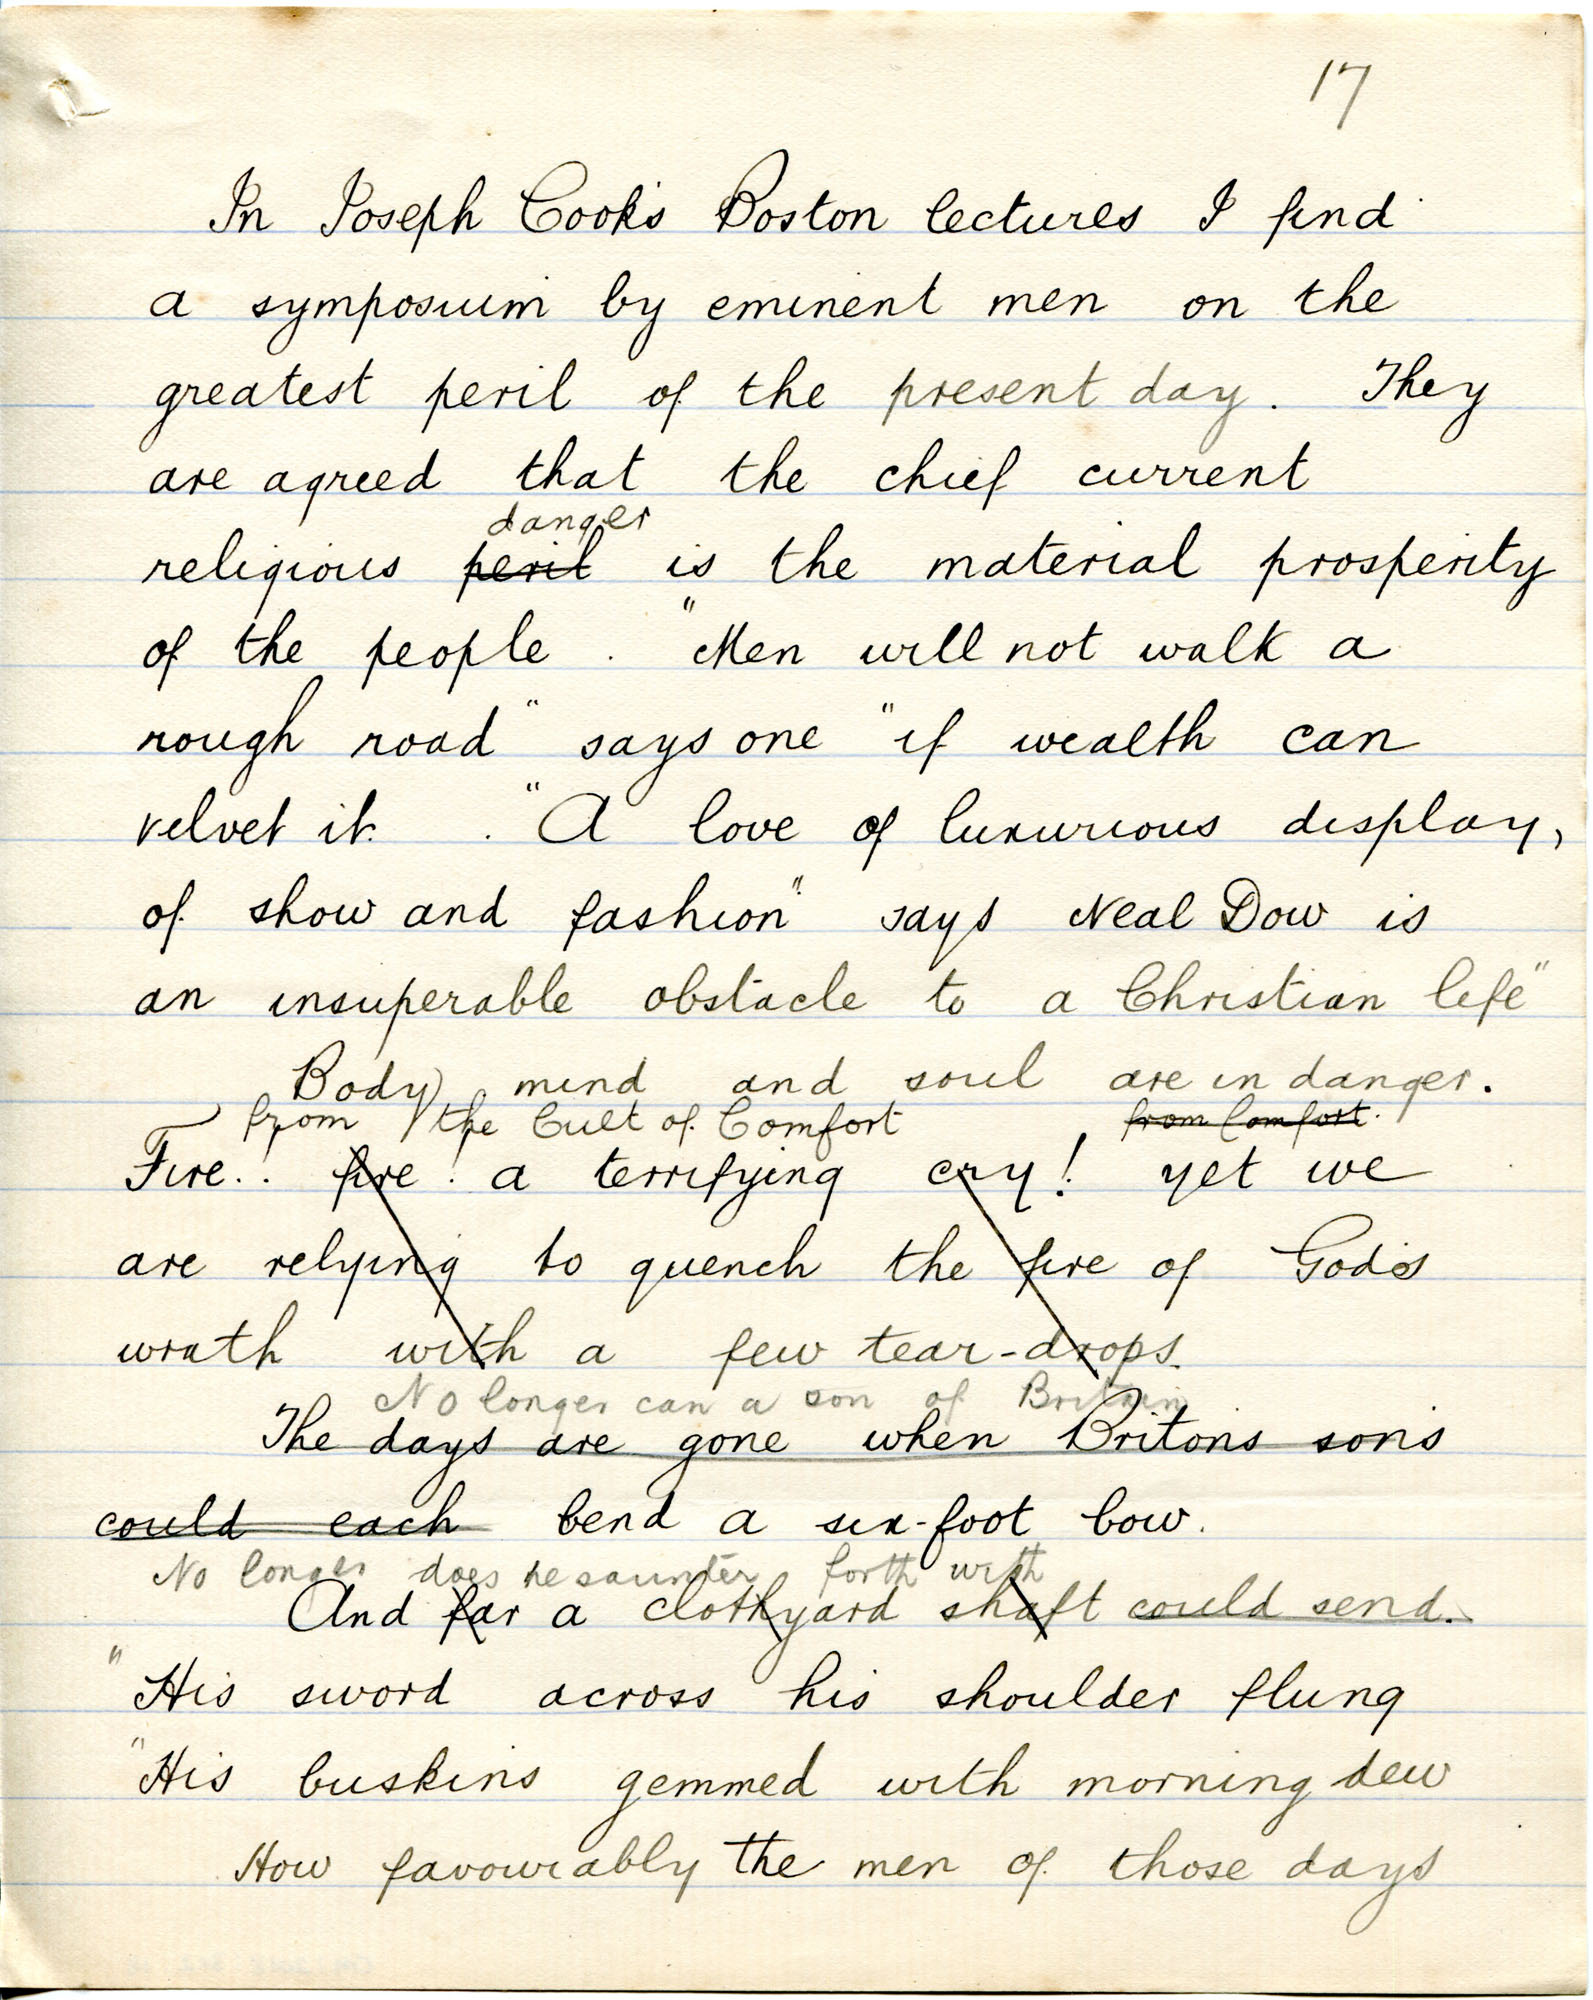 17
In Joseph Cook's Boston lectures I find
a symposium by eminent men on the
greatest peril of the present day. They
are agreed that the chief current
danger
religious peril is the material prosperity
of the people. "Men will not walk a
rough road" says one "if wealth can
velvet it. "A love of luxurious display,
of show and fashion" says Neal Dow is
an insuperable obstacle to a Christian life"
Body mind and soul are in danger.
from the Cult of Comfort from Comfort.
Fire.! fire! a terrifying cry! yet we
are relying to quench the fire of God's
wrath with a few tear-drops.
No longer can a son of Britain
The days are gone when Briton's sons
could each bend a six-foot bow.
No longer does he saunter forth with
And far a clothyard shaft could send.
"His sword across his shoulder flung
"His buskins gemmed with morning dew
How favourably the men of those days